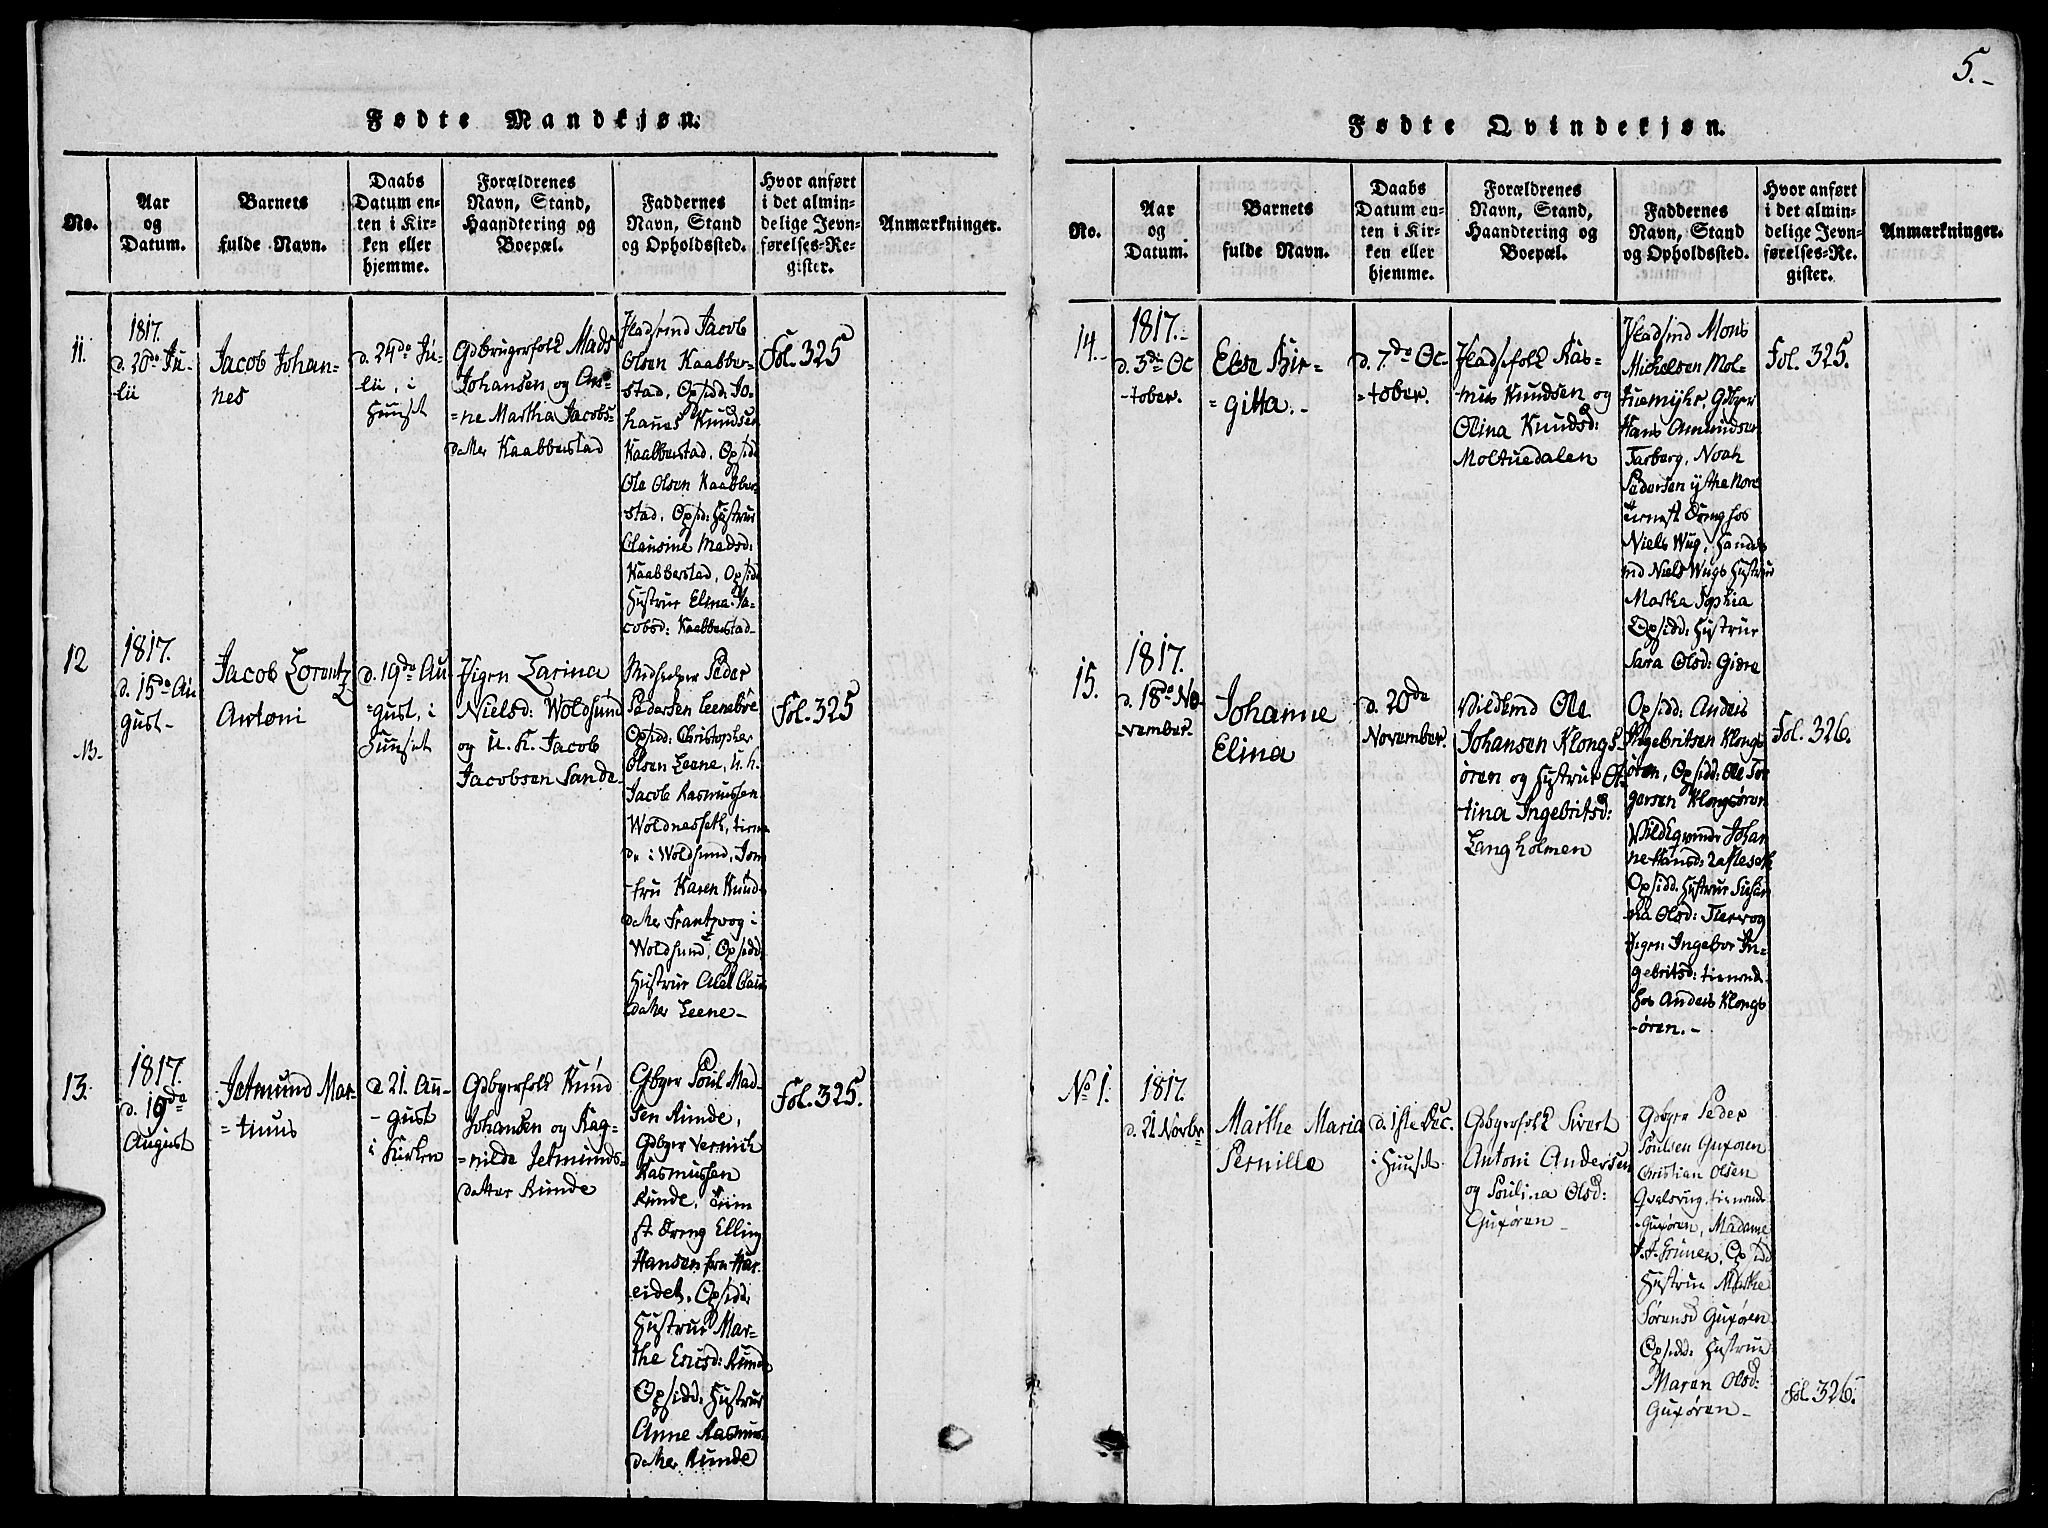 5.-
Fødte Mandkjøn.
No.
Aar
og
Datum.
Barnets
fulde Navn.
Daabs
Datum en-
ten i Kir-
ken eller
hjemme.
Forældrenes
Navn, Stand,
Haandtering og
Boepæl.
Faddernes
Navn, Stand
og Opholdssted.
Hvor anført
i det almin-
delige Jevn-
førelses-Re-
gister.
Anmærkninger.
11.
1817.
d. 20de Ju-
lii
Jacob Johan-
nes
d. 24de Ju-
lii, i
Huuset
Gdbrugerfolk Mads
Johansen og An-
=ne Martha Jacobs-
datter Kaabberstad
Jacob
Olsen Kaabber-
stad, Opsidd: Jo-
hannes Knudsen
Kaabberstad, Opsid
Ole Olsen Kaabber-
stad, Opsid: Hustrue
Clausine Madsd:
Kaabberstad, Opsid
Hustrue Elina Ja-
cobsd: Kaabberstad-
Fol. 325
12
1817.
d. 15de Au
gust-
Jacob Lorentz
Antoni
d. 19de Au
=gust, i
Huuset
Pigen Larina
Nielsd: Woldsund
og U. K. Jacob
Jacobsen Sande-
Peder
Pedersen Leenebøe
Opsidd: Christopher
Olsen Leene, U. K.
Jacob Rasmussen
Woldnesseth, tiene
de i Woldsund, Jom
-fru Karen Knud-
datter Frantzvog i
Woldsund, Opsidd
Hustrue
datter Leene-
Fol. 325
13.
13.
1817.
d. 19de
August
Jetmund Mar-
=tinus
d 21. Au-
-gust
i Kirken
Gdbgerfolk Knud
Johansen og Rag-
=nilda Jetmunds-
datter Runde
Gbger Poul Mad-
sen Runde,
Gdbger Vernich
Rasmussen
Runde,
Dreng Elling
Hansen fra Har-
eidet, Opsidd:
Hustrue Mar-
the Ericsd: Runde
Opsidd: Hustrue
Anne Rasmus-
datter Runde
Fol. 325.
Fødte Qvindekjøn.
No.
Aar
og
Datum.
Barnets
fulde Navn.
Daabs
Datum en-
ten i Kir-
ken eller
hjemme.
Forældrenes
Navn, Stand,
Haandtering og
Boepæl.
Faddernes
Navn, Stand
og Opholdssted.
Hvor anført
i det almin-
delige Jevn-
førelses-Re-
gister.
Anmærkninger.
14.
1817.-
d. 3die Oc
-tober.
Else Bir-
=gitta.-
d. 7de Oc-
=tober.
Pladsfolk Ras-
mus Knudsen og
Olina Knudsd:
Moltuedalen
Pladsmd Mons
Mickelsen Mol-
tuemyhr, Gdbger
Hans Amundsen
Tarberg, Noah
Pedersen
Dreng hos
Niels Wug, Handels
md Niels Wugs Hustrue
Martha Sophia
Opsidd: Hustrue
Sara Olsd:
Fol. 325.
15.
1817.
d. 18de No-
vember.
Johanne
Elina
d. 20de
November.
Ole
Johansen Klongs-
øren og Hustrue Ol-
tina Ingebritsd:
Langholmen
Opsidd: Anders
Ingebritsen Klongs
øren, Opsidd: Ole Tor
gersen Klongsøren
Johan
ne Hansd:
Opsidd. Hustrue Susan
na Olsd:
Pigen Ingebor In-
gebritsd: tienende
hos Anders Klongs
-øren.-
Fol. 326.
No 1.
1817.
d. 21 Novbr
Marthe Maria
Pernille
d. 1ste Dec.
i Huuset
Gdbgerfolk Sivert
Antoni Andersen
og Poulina Olsd:
Guxøren-
Gdbger Peder
Poulsen Guxøren
Christian Olsen
Qvalsvug, tienende
Guxøren, Madame
Opsidd
Hustrue Marthe
Sørensd Guxøren
Opsidd: Hustrue
Maren Olsd:
Guxøren-
Fol. 326.